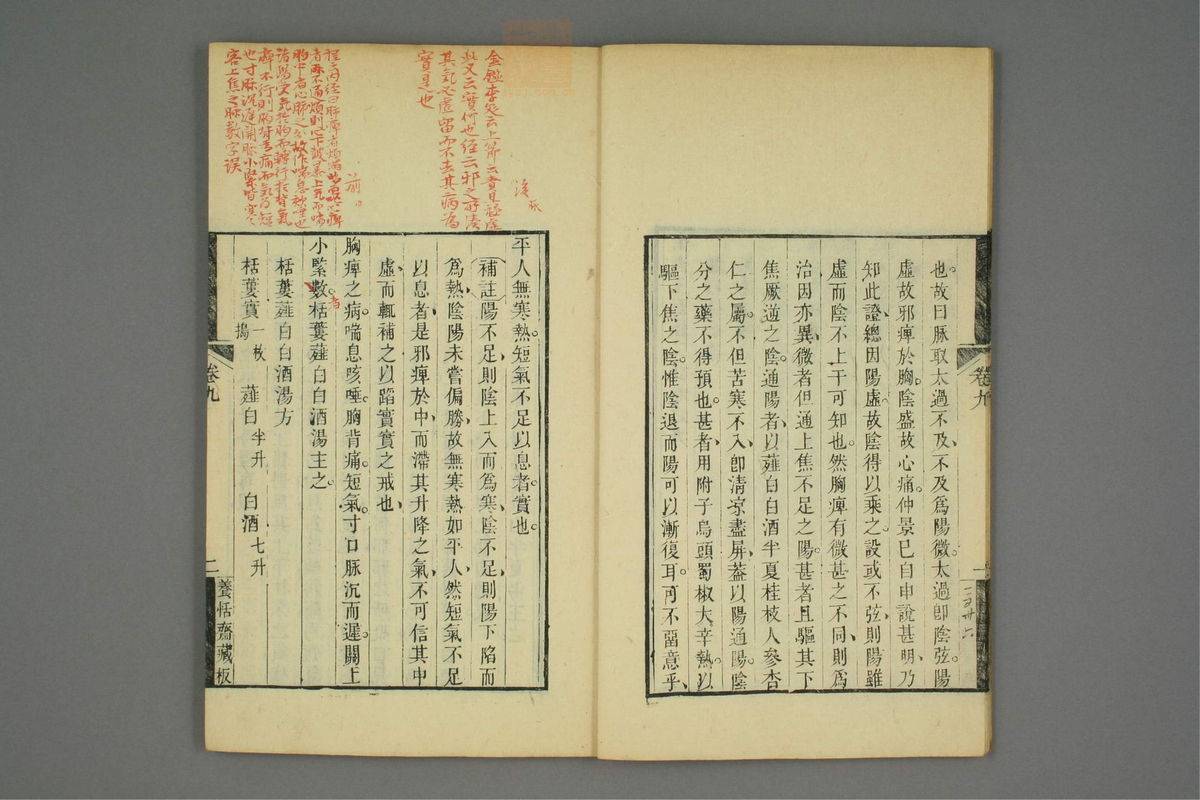 也故曰脉取太過不及不及爲陽微太過卽陰弦陽
虛故邪痺於胸陰盛故心痛仲景已自申說甚明乃
知此證總因陽虛故陰得以乘之設或不弦則陽雖
虛而陰不上干可知也然胸痺有微甚之不同則爲
治因亦異微者但通上焦不足之陽甚者且驅其下
焦厥逆之陰通陽者以薤白白酒半夏桂枝人參杏
仁之屬不但苦寒不入卽清凉盡屏蓋以陽通陽陰
分之藥不得預也甚者用附子烏頭蜀椒大辛熱以
驅下焦之陰惟陰退而陽可以漸復耳可不留意乎
卷九
二
平人無寒熱短氣不足以息者實也
補註陽不足則陰上入而爲寒陰不足則陽下陷而
爲熱陰陽未嘗偏勝故無寒熱如平人然短氣不足
以息者是邪痺於中而滯其升降之氣不可信其中
虛而輒補之以蹈實實之戒也
胸痺之病喘息咳唾胸背痛短氣寸口脉沉而遲關上
小緊數栝蔞薤白白酒湯主之
者
栝蔞薤白白酒湯方
栝蔞實一枚搗 薤白半升 白酒七升
卷九
二
養恬齋藏板
金鑑李 云上節云責其極虛
此又云實何也經云邪之所湊
其氣必虛留而不去其病爲
實是也
前
程云內經曰肺痺者煩滿喘而嘔心痺
者脉不通煩則心下鼓暴上氣而喘
胸中者心肺之分故作喘息欬唾也
諸陽受氣於胸而轉行於背氣
痺不行則胸背爲痛而氣爲短
也寸脉沉遲關脉小緊皆寒
客上焦之脉數字誤